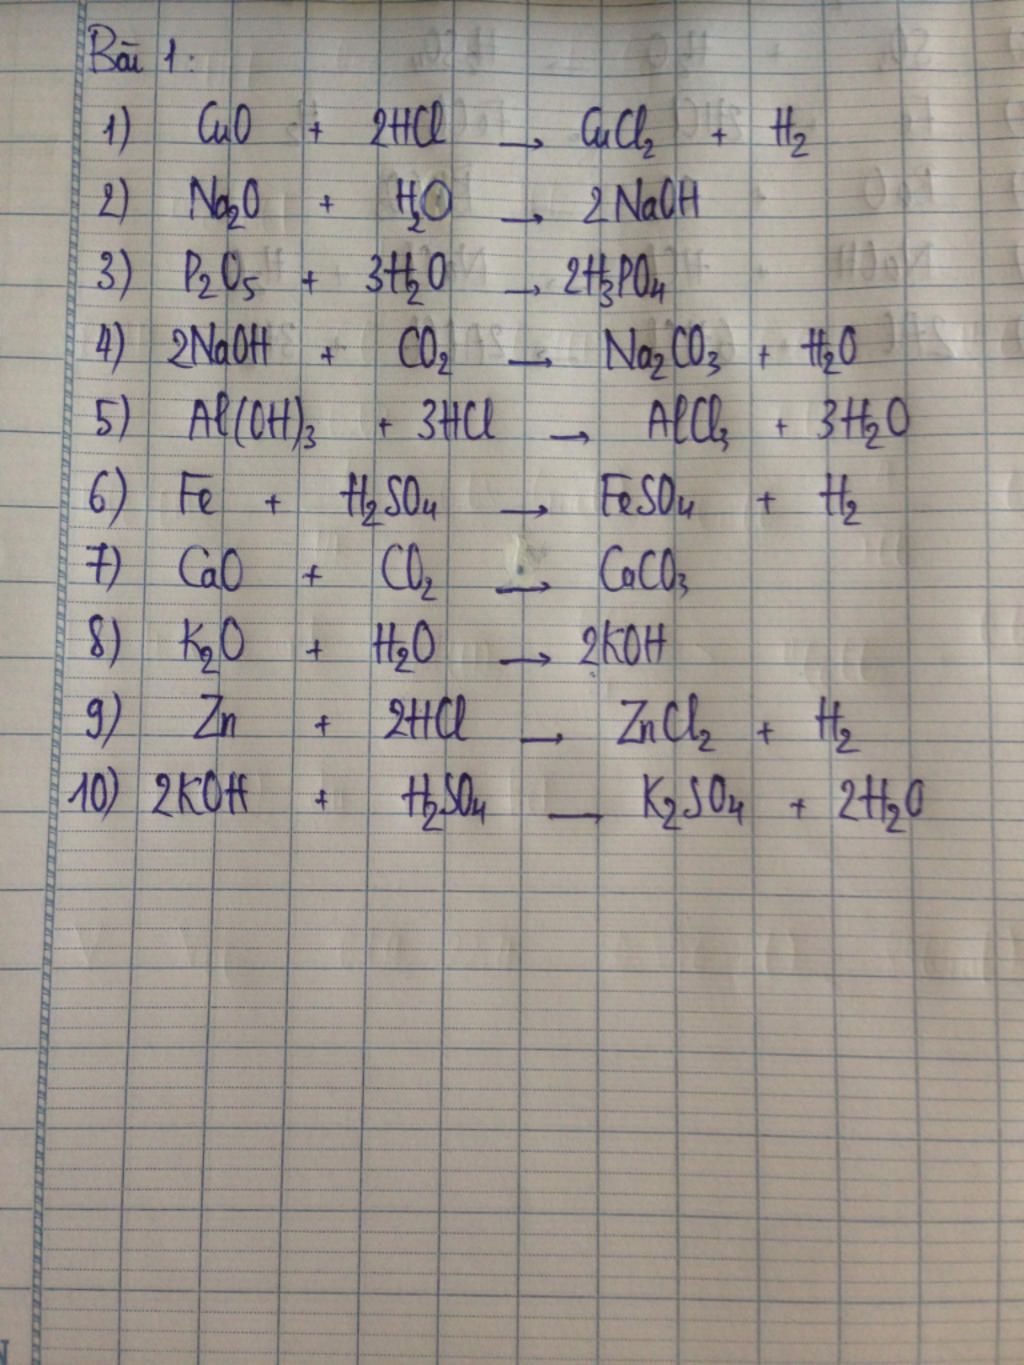 Bài 1:
1) CuO + 2HCl → CuCl₂ + H₂
2) Na₂O + H₂O → 2NaOH
3) P₂O₅ + 3H₂O → 2H₃PO₄
4) 2NaOH + CO₂ → Na₂CO₃ + H₂O
5) Al(OH)₃ + 3HCl → AlCl₃ + 3H₂O
6) Fe + H₂SO₄ → FeSO₄ + H₂
7) CaO + CO₂ → CaCO₃
8) K₂O + H₂O → 2KOH
9) Zn + 2HCl → ZnCl₂ + H₂
10) 2KOH + H₂SO₄ — K₂SO₄ + 2H₂O